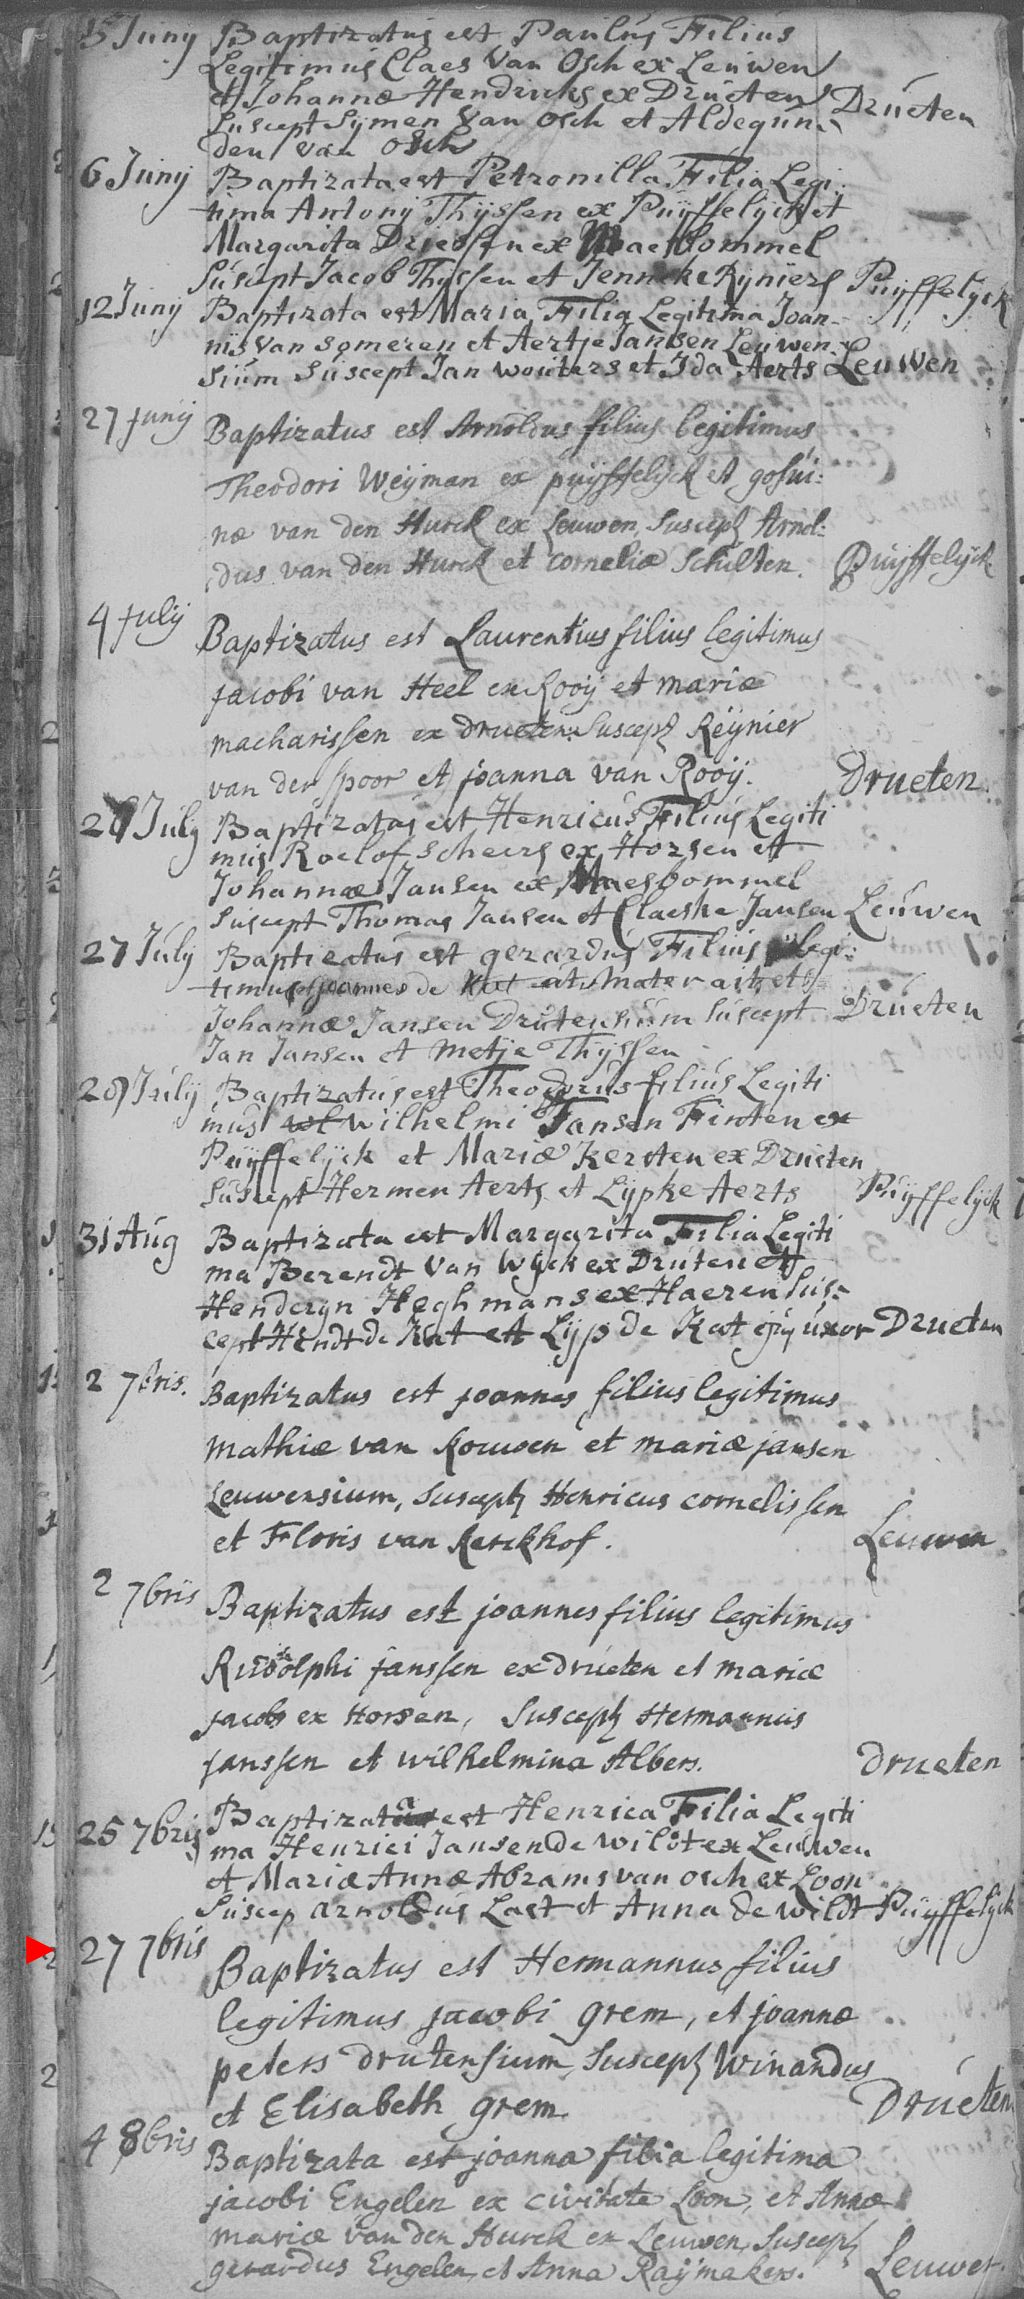 5 Junij Baptizatus est Paulus Filius
Legitimus Claes Van Osch ex Leuwen
et Johannæ Hendricks ex Drueten Drueten
Suscept Sijmen Van Osch et Aldegun
den van Osch
6 Junij Baptizata est Petronilla Filia Legi:
tima Antonij Thijssen ex Puijffelijck et
Margarita Driessen ex Maesbommel
Suscept Jacob Thijssen et Jenneke Rijniers Puijffelijck
12 Junij Baptizata est Maria Filia Legitima Joan-
nis Van Someren et Aertje Jansen Leuwen-
sium Suscept Jan Wouters et Ida Aerts Leuwen
27 Junij Baptizatus est Arnoldus filius legitimus
Theodori Weijman ex puijffelijck et gosui:
næ van den Hurck ex Leuwen, Suscept Arnol:
dus van den Hurck et corneliæ Schulten. Puijffelijck
4 Julij Baptizatus est Laurentius filius legitimus
jacobi van Heel ex Rooij et mariæ
macharissen ex drueten Suscept Reijnier
van der spoor et joanna van Rooij. Drueten
July Baptizatus est Henricus Filius Legiti
mus Roelof Scheers ex Horsen et
Johannæ Jansen ex Maesbommel
Suscept Thomas Jansen et Claeske Jansen Leuwen
27 July Baptizatus est gerardus Filius legi:
timus joannes de Kat et
Johannæ Jansen Drutensium Suscept Drueten
Jan Jansen et Metje Thijssen
Julij Baptizatus est Theodorus filius Legiti
mus Wilhelmi Jansen ex
Puijffelijck et Mariæ Kersten ex Drueten
Suscept Hermen Aerts et Lijpke Aerts Puijffelijck
31 Aug Baptizata est Margarita Filia Legiti
ma Berendt Van Wijck ex Druten et
Henderyn Heghmans ex Haeren Sus-
cept Hendt de Kat et Lijp de Kat ejus uxor Drueten
2 7bris. Baptizatus est joannes filius legitimus
Mathiæ van Rouwen et mariæ jansen
Leuwensium, Suscept Henricus cornelissen
et Floris van Kerckhof. Leuwen
2 7bris Baptizatus est joannes filius legitimus
Rudolphi janssen ex drueten et mariæ
jacobs ex Horsen, Suscept Hermannus
janssen et wilhelmina Albers. drueten
25 7bris Baptizata est Henrica Filia Legiti
ma Henrici Jansen de Wildt ex Leuwen
et Mariæ Annæ Abrams van Osch ex Loon
Suscep Arnoldus Last et Anna de Wildt Puijffelijck
27 7bris Baptizatus est Hermannus filius
legitimus jacobi grem, et joannæ
peters drutensium, Suscept Winandus
et Elisabeth grem Drueten
4 8bris Baptizata est joanna filia legitima
jacobi Engelen ex civitate Loon, et Annæ
mariæ van den Hurck ex Leuwen, Suscept
gerardus Engelen, et Anna Raijmakers. Leuwen